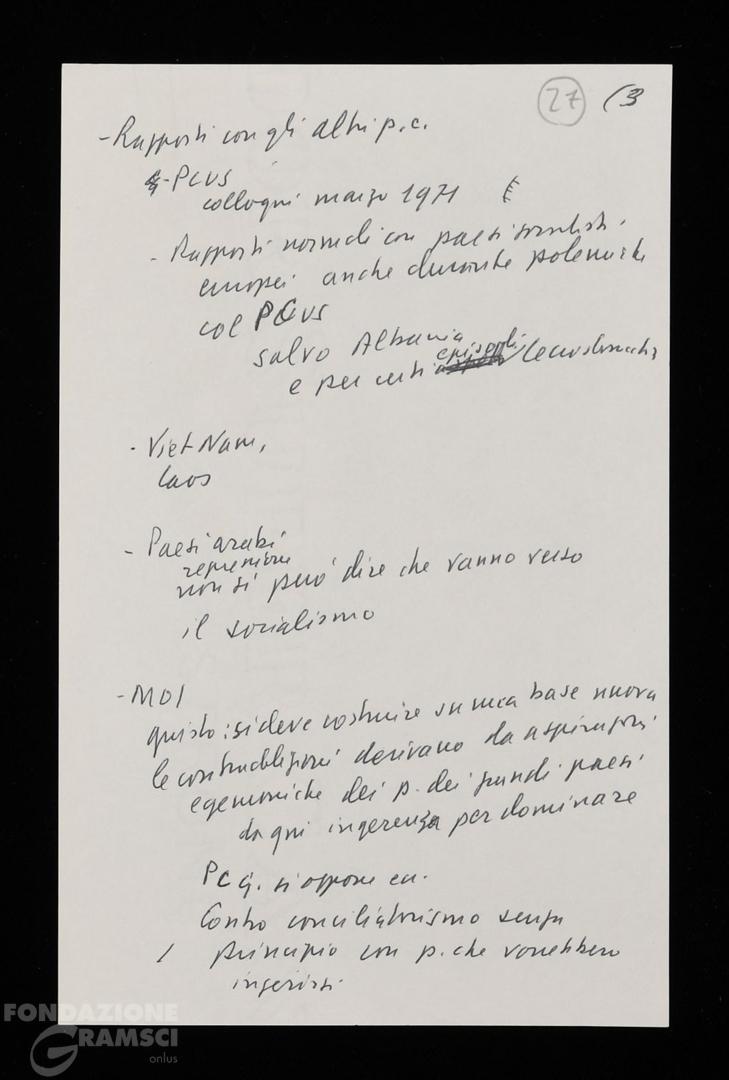 27 (3
- Rapporti con gli altri p.c.
- PCUS
colloqui marzo 1971
- Rapporti normali con paesi socialisti
europei anche durante polemiche
col PCUS
salvo Albania
episodi
e per certi Cecoslovacchia
- Viet Nam,
Laos
- Paesi arabi
repressione
non si può dire che vanno verso
il socialismo
- MOI
giusto: si deve costruire su una base nuova
le contraddizioni derivano da aspirazioni
egemoniche dei p. dei grandi paesi
da qui ingerenza per dominare
PC G. si oppone
Contro conciliatorismo senza
/ principio con p. che vorrebbero
ingerirsi
FONDAZIONE
GRAMSCI
onlus